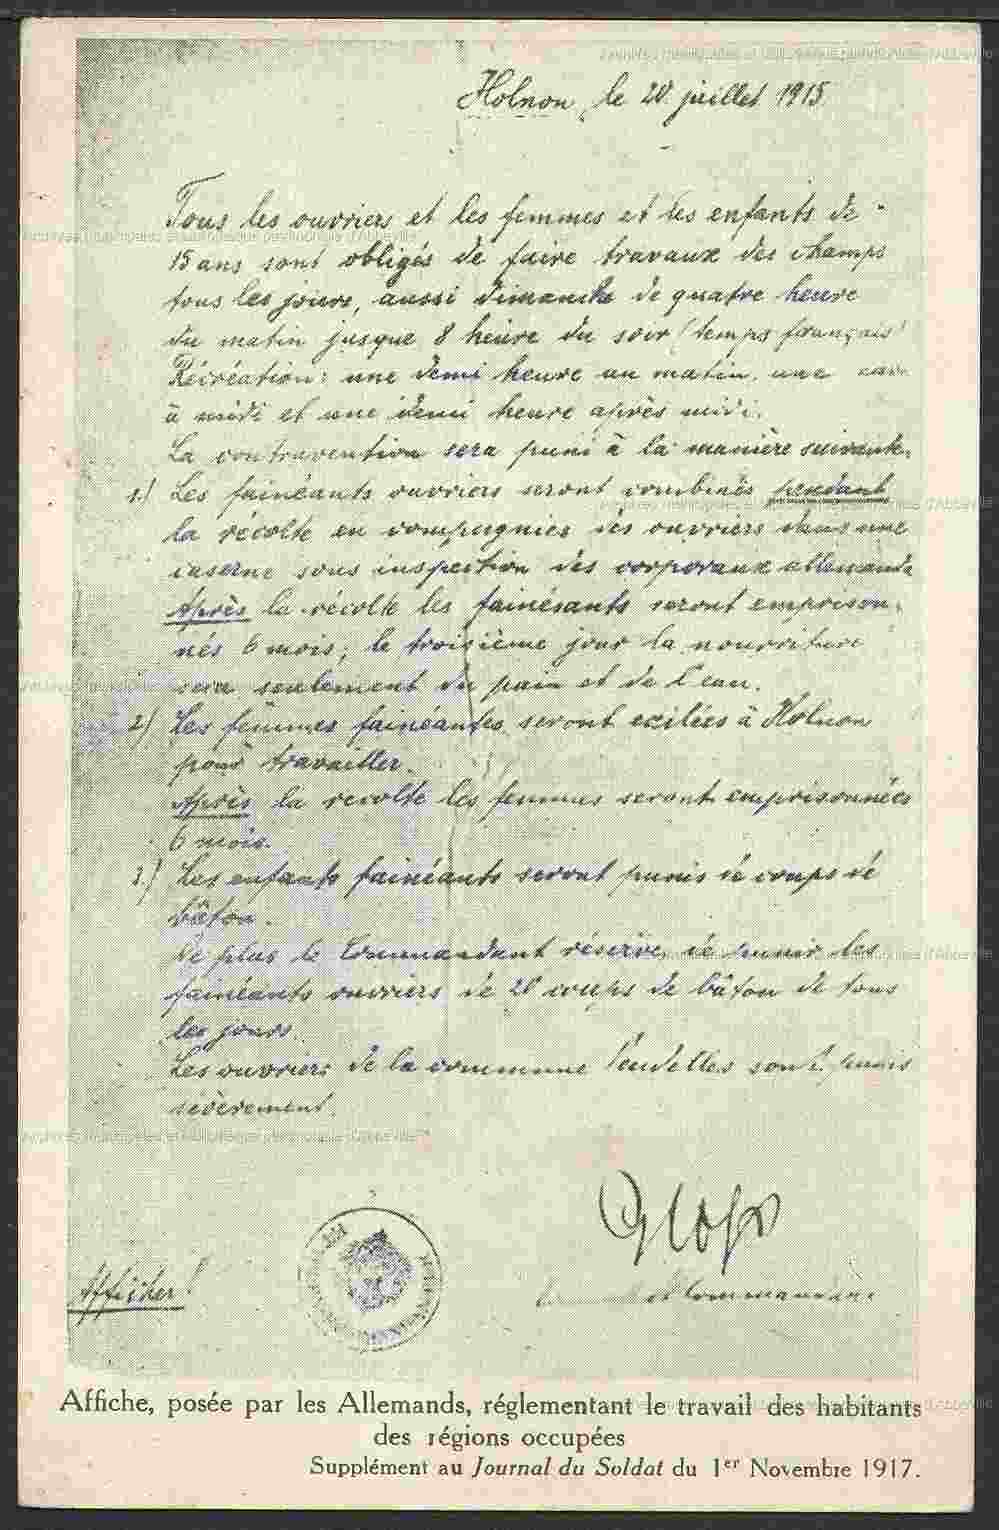 Holnon, le 20 juillet 1915
Tous les ouvriers et les femmes et les enfants de
15 ans sont obligés de faire travaux des champs
tous les jours, aussi dimanche de quatre heure
du matin jusque 8 heure du soir (temps français)
Récréation: une demi heure au matin, une
à midi et une demi heure après midi.
La contravention sera puni à la manière suivante.
1.) Les fainéants ouvriers seront combinés pendant
la récolte en compagnies des ouvriers dans une
caserne sous inspection des corporaux allemands
Après la récolte les fainéants seront emprison-
nés 6 mois; le troisième jour la nourriture
sera seulement du pain et de l'eau.
2) Les femmes fainéantes seront exilées à Holnon
pour travailler.
Après la recolte les femmes seront emprisonnées
6 mois.
3.) Les enfants fainéants seront punis de coups de
bâton.
De plus le Commandant réserve de punir les
fainéants ouvriers de 20 coups de bâton de tous
les jours.
Les ouvriers de la commune Vendelles sont punis
sévèrement.
Glosz
et Commandant
Afficher!
Affiche, posée par les Allemands, réglementant le travail des habitants
des régions occupées
Supplément au Journal du Soldat du 1er Novembre 1917.
Archives municipales et bibliothèque patrimoniale d'Abbeville